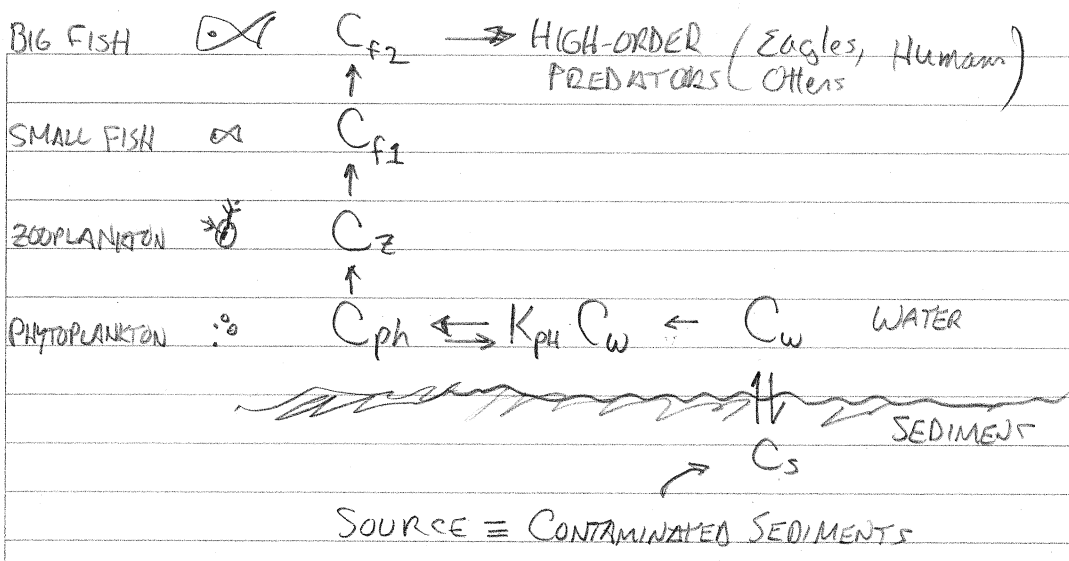 BIG FISH C_f2 → HIGH-ORDER PREDATORS (Eagles, Otters Humans)
SMALL FISH C_f1
ZOOPLANKTON C_z
PHYTOPLANKTON C_ph ⇌ K_PH C_w ← C_w WATER
SEDIMENT
C_s
SOURCE ≡ CONTAMINATED SEDIMENTS